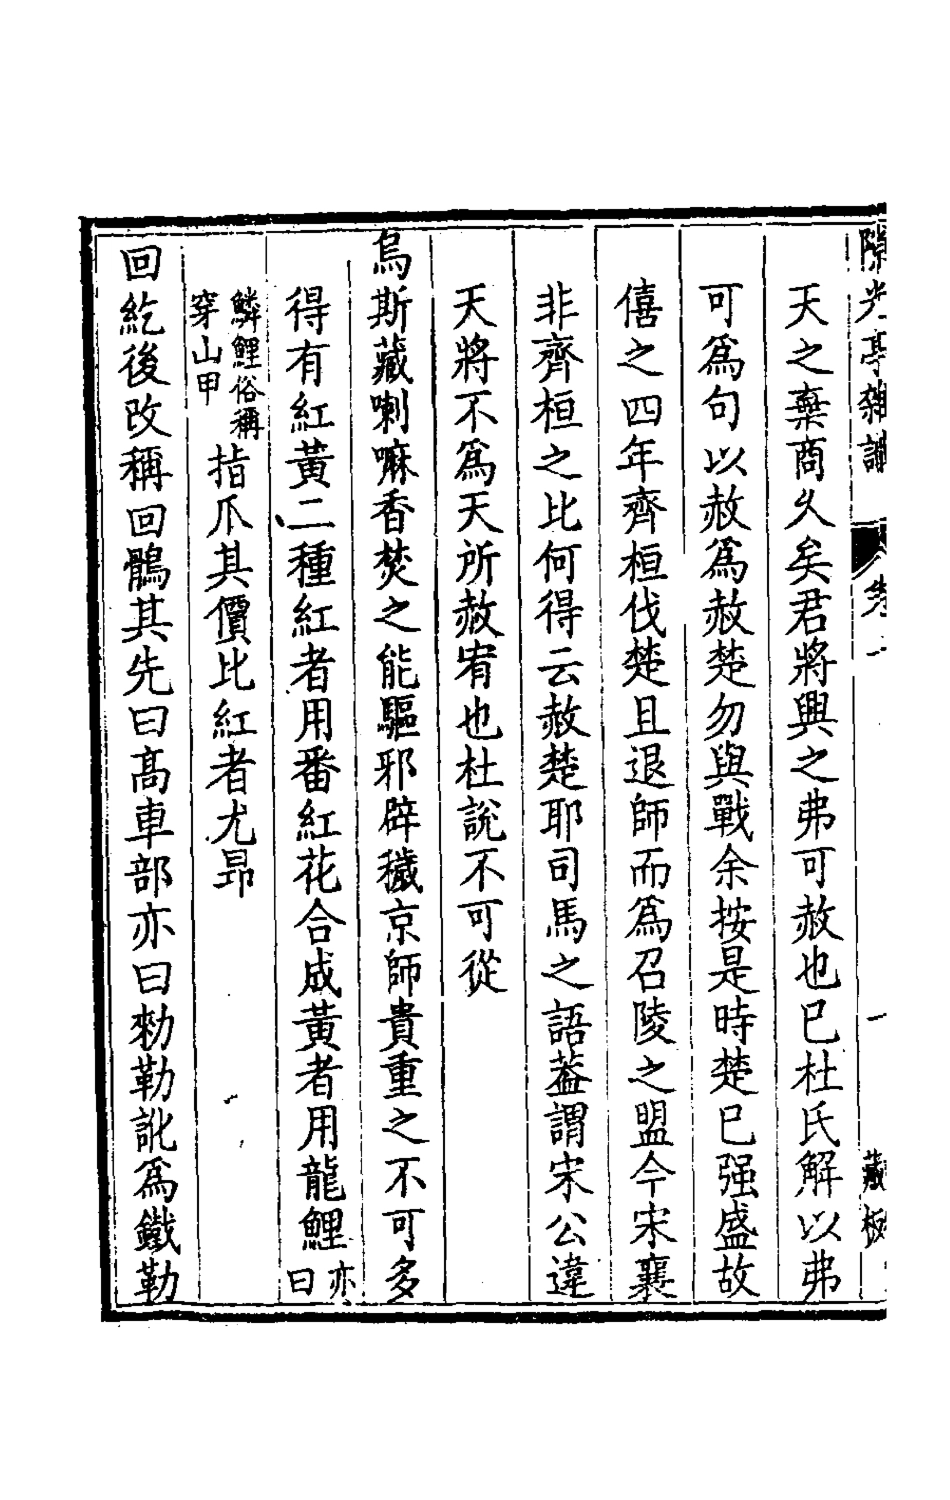 隙光亭雜識 卷一 一 藏板
天之棄商久矣君將興之弗可赦也已杜氏解以弗
可爲句以赦爲赦楚勿與戰余按是時楚已强盛故
僖之四年齊桓伐楚且退師而爲召陵之盟今宋襄
非齊桓之比何得云赦楚耶司馬之語葢謂宋公違
天將不爲天所赦宥也杜說不可從
烏斯藏喇嘛香焚之能驅邪辟穢京師貴重之不可多
得有紅黃二種紅者用番紅花合成黃者用龍鯉亦曰
鱗鯉俗稱穿山甲指爪其價比紅者尤昂
回紇後改稱回鶻其先曰高車部亦曰勑勒訛爲鐵勒